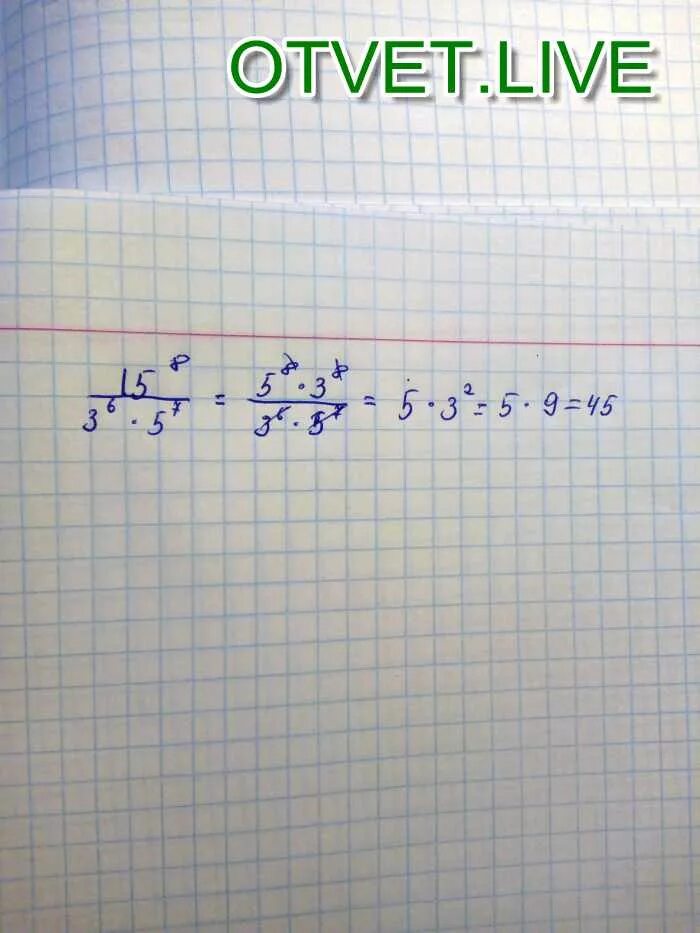 OTVET.LIVE
15^8 / (3^6 · 5^7) = (5^8 · 3^8) / (3^6 · 5^7) = 5 · 3^2 = 5 · 9 = 45